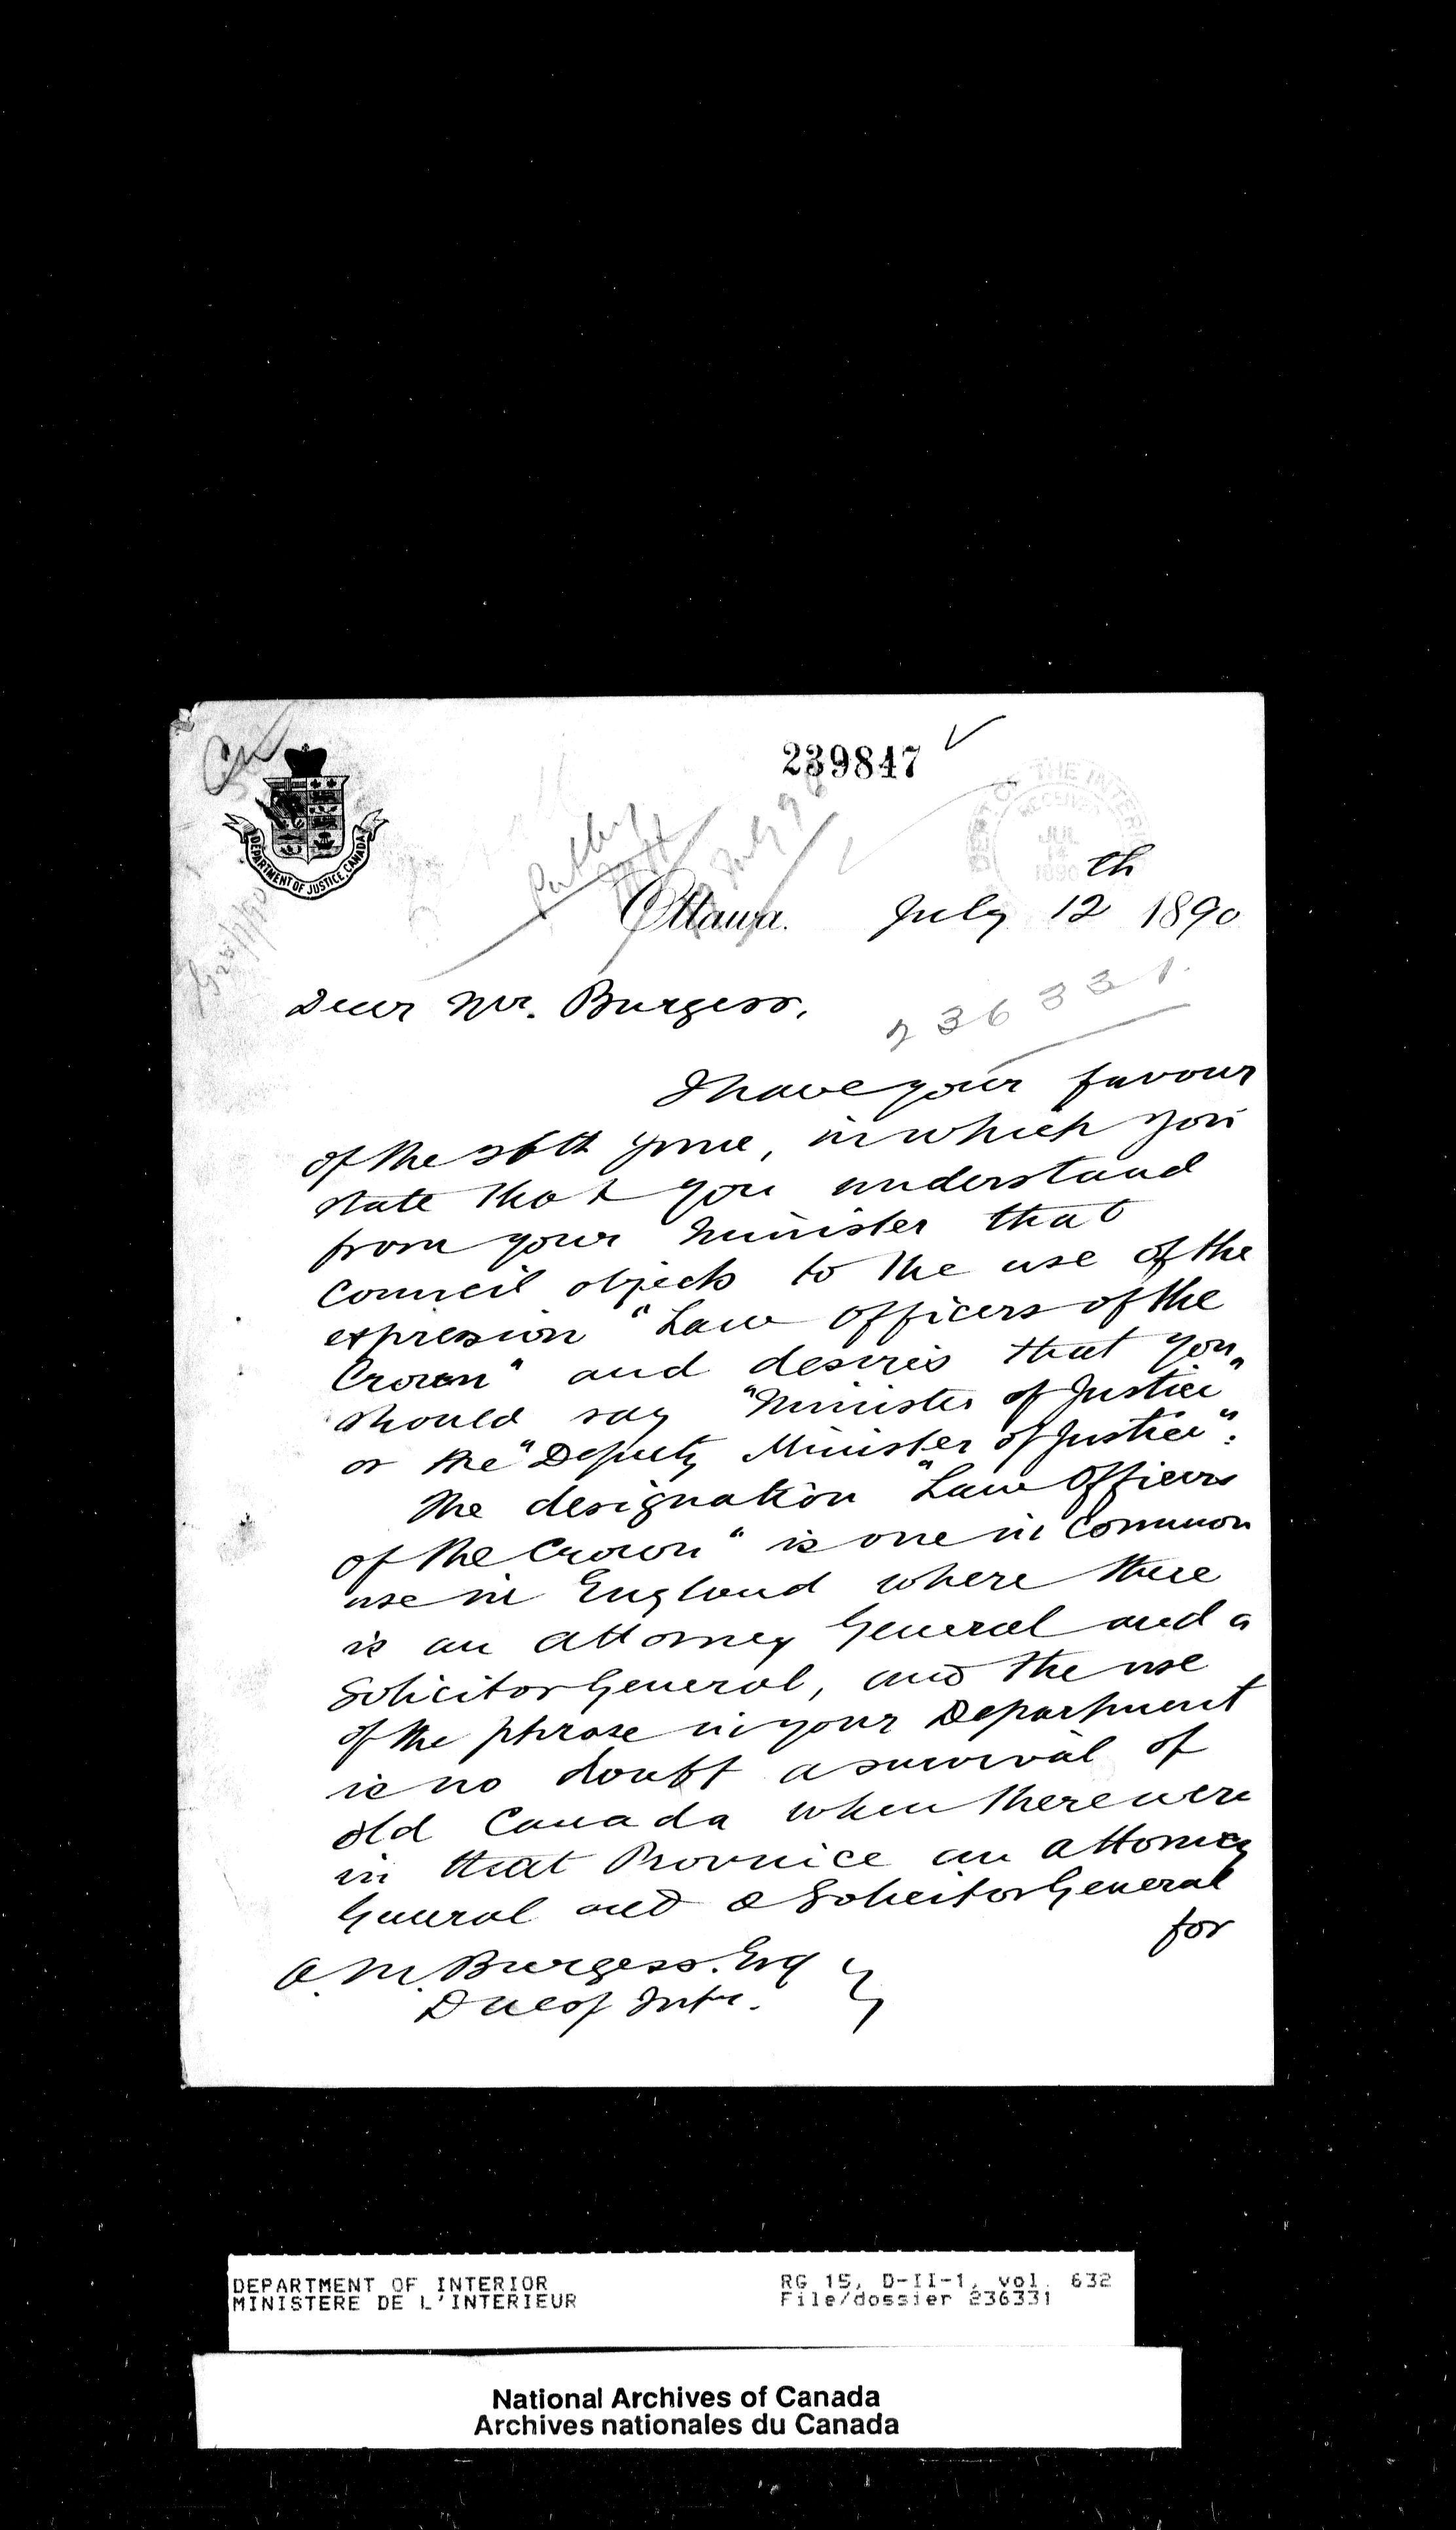 239847
DEPT OF THE INTERIOR
RECEIVED
JUL
14
1890
DEPARTMENT OF JUSTICE, CANADA
Ottawa. July 12th 1890
236331
Dear Mr. Burgess,
I have your favour
of the 26th June, in which you
state that you understand
from your Minister that
Council objects to the use of the
expression "Law Officers of the
Crown" and desires that you
should say "Minister of Justice"
or the "Deputy Minister of Justice".
The designation "Law Officers
of the Crown" is one in common
use in England where there
is an Attorney General and a
Solicitor General, and the use
of the phrase in your Department
is no doubt a survival of
old Canada when there were
in that Province an Attorney
General and a Solicitor General
for
A. M. Burgess. Esq
Intr.
DEPARTMENT OF INTERIOR
MINISTERE DE L'INTERIEUR
RG 15, D-II-1, vol. 632
File/dossier 236331
National Archives of Canada
Archives nationales du Canada